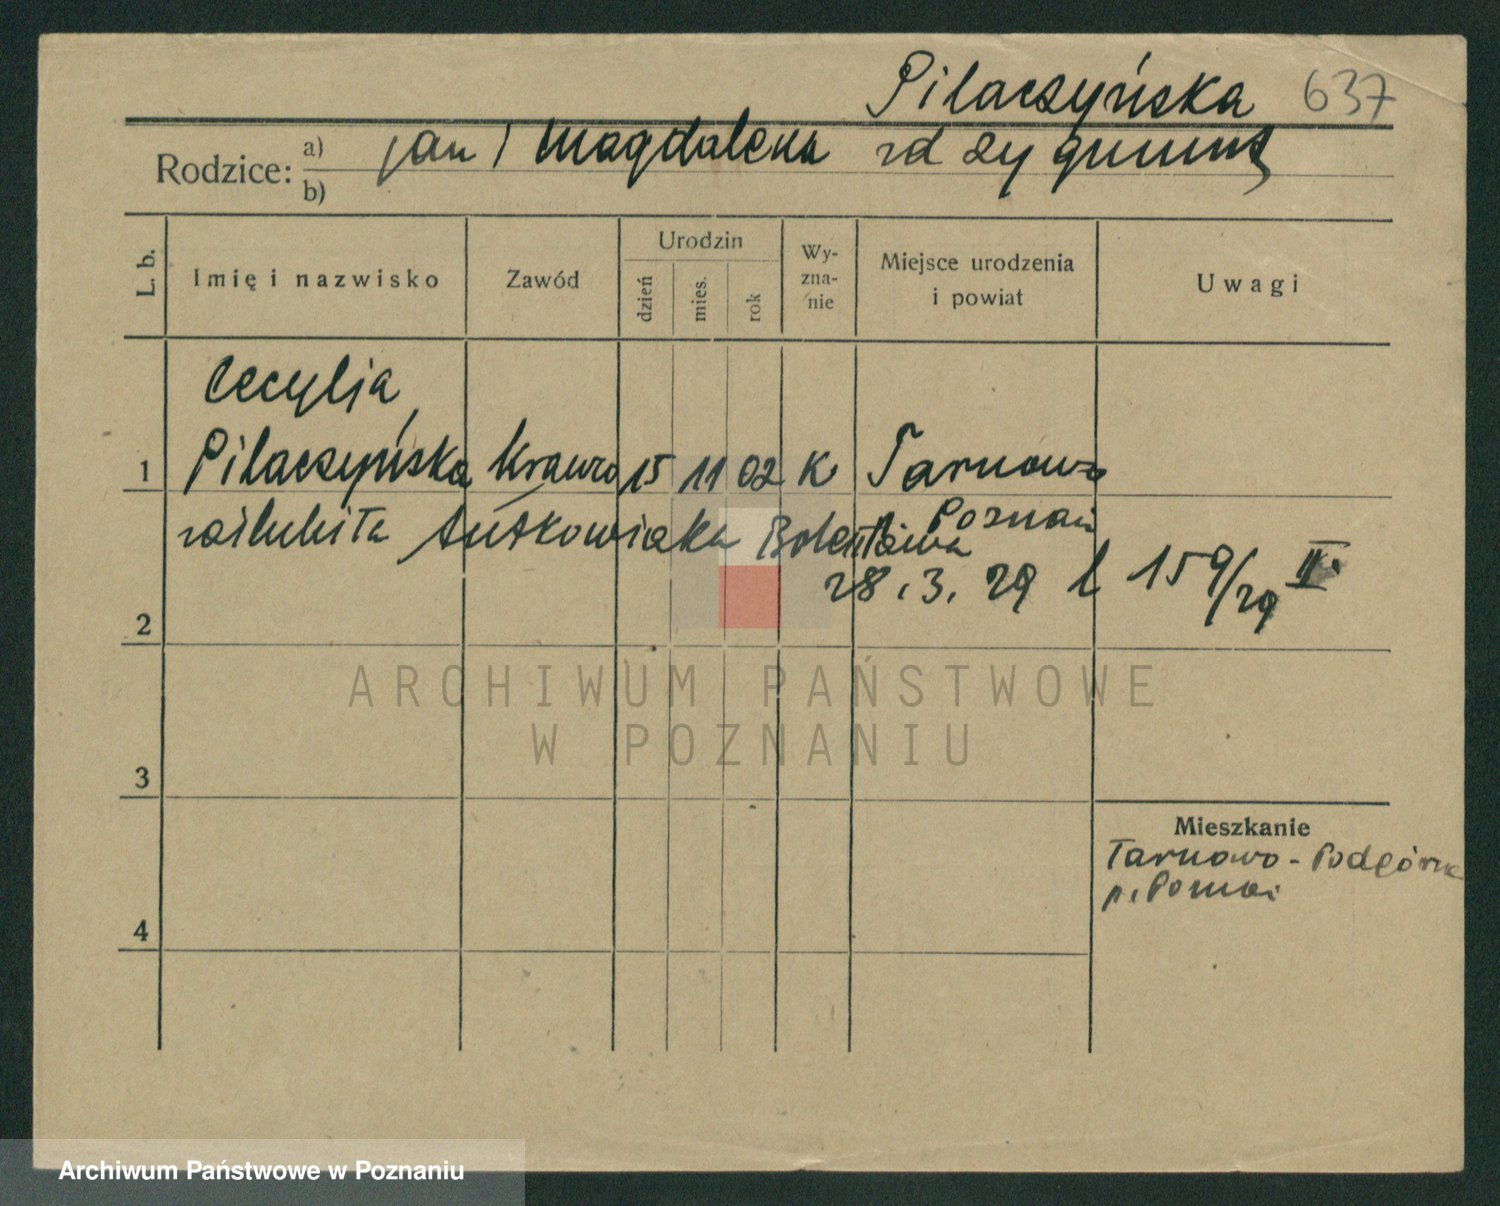 Pilaczyńska 637
Rodzice: a) Jan i Magdalena zd Zygmunt
b)
L. b.
Imię i nazwisko
Zawód
Urodzin
dzień
mies.
rok
Wy-
zna-
nie
Miejsce urodzenia
i powiat
Uwagi
Cecylja
1 Pilaczyńska 15 11 02 K Tarnowo
Poznań
zaślubiła Antkowiaka Bolesława
28.3.29 l 159/29 II.
2
ARCHIWUM PAŃSTWOWE
W POZNANIU
3
Mieszkanie
Tarnowo-Podgórne
p. Poznań
4
Archiwum Państwowe w Poznaniu